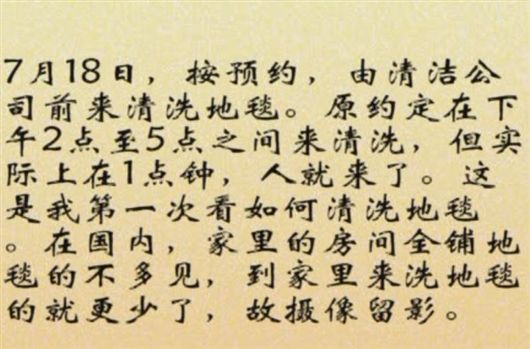 7月18日，按预约，由清洁公
司前来清洗地毯。原约定在下
午2点至5点之间来清洗，但实
际上在1点钟，人就来了。这
是我第一次看如何清洗地毯
。在国内，家里的房间全铺地
毯的不多见，到家里来洗地毯
的就更少了，故摄像留影。